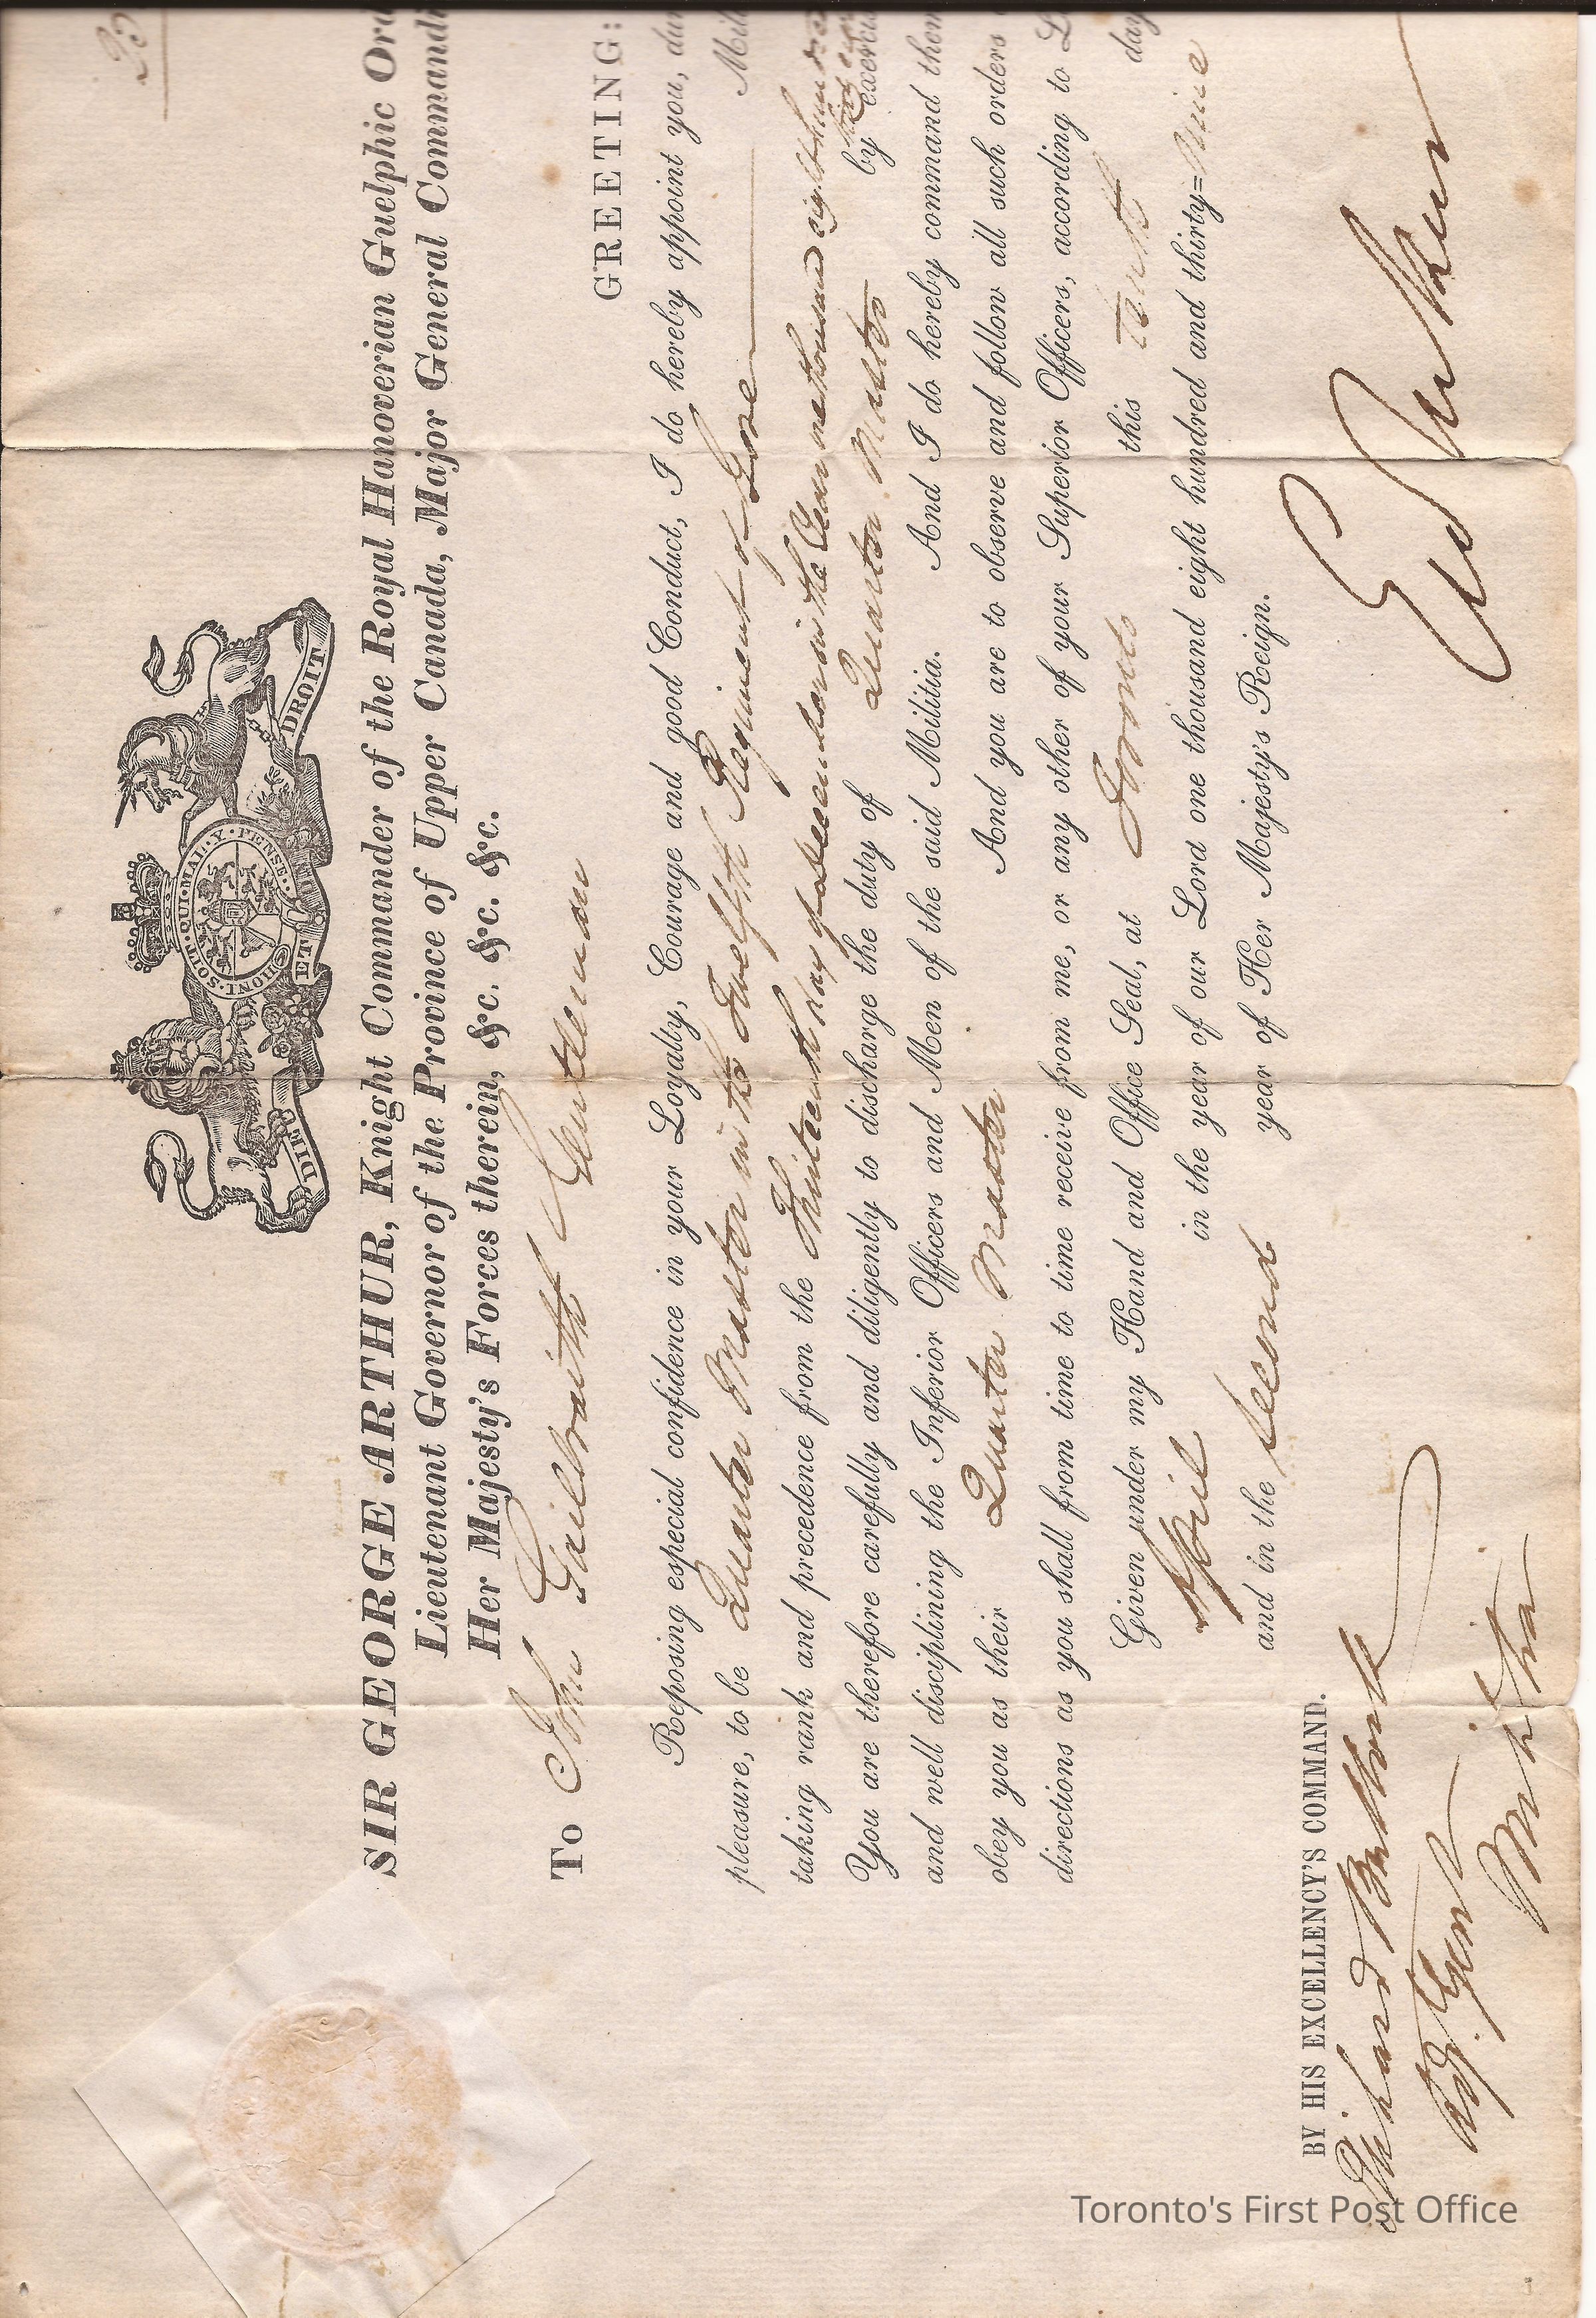 HONI·SOIT·QUI·MAL·Y·PENSE
DIEU ET DROIT
SIR GEORGE ARTHUR, Knight Commander of the Royal Hanoverian Guelphic Ord
Lieutenant Governor of the Province of Upper Canada, Major General Commandi
Her Majesty's Forces therein, &c. &c. &c.
To John Gailbraith Gentleman
GREETING:
Reposing especial confidence in your Loyalty, Courage and good Conduct, I do hereby appoint you, dur
pleasure, to be Quarter Master in the Twelfth Regiment of Gore Mili
taking rank and precedence from the Thirteenth day of December in the Year one thousand eight hundred
You are therefore carefully and diligently to discharge the duty of Quarter Master by exercis
and well disciplining the Inferior Officers and Men of the said Militia. And I do hereby command them
obey you as their Quarter Master And you are to observe and follow all such orders
directions as you shall from time to time receive from me, or any other of your Superior Officers, according to L
Given under my Hand and Office Seal, at Toronto this tenth day
April in the year of our Lord one thousand eight hundred and thirty=Nine
and in the second year of Her Majesty's Reign.
BY HIS EXCELLENCY'S COMMAND.
Richard Bullock
Adj. Genl
Militia
Toronto's First Post Office